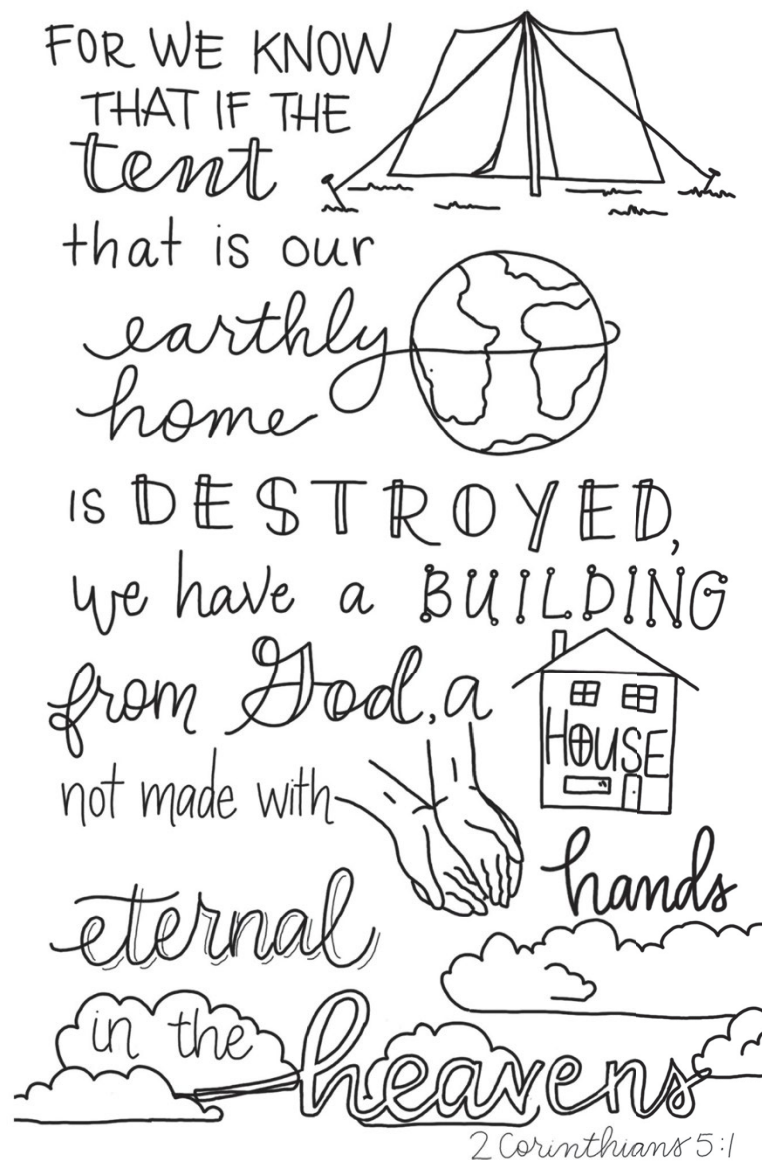 FOR WE KNOW
THAT IF THE
tent
that is our
earthly
home
IS DESTROYED,
we have a BUILDING
from God, a
HOUSE
not made with
hands
eternal
in the
heavens
2 Corinthians 5:1